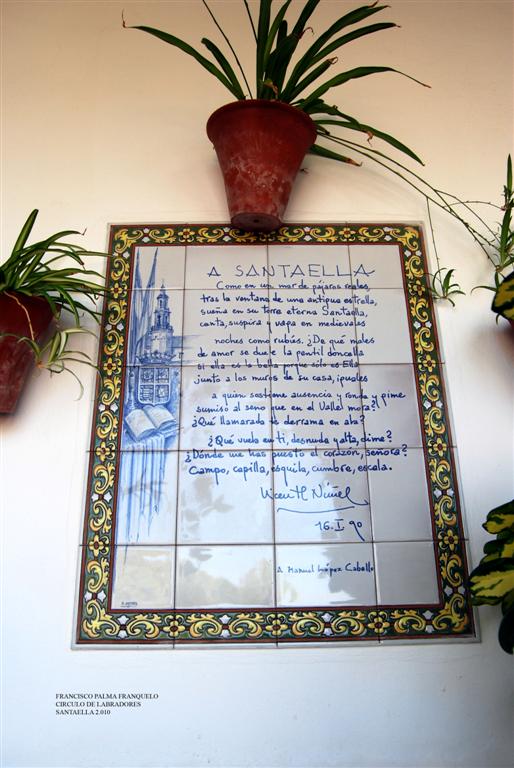 A SANTAELLA
Como en un mar de pájaros reales,
tras la ventana de una antigua estrella,
sueña en su torre eterna Santaella,
canta, suspira y vaga en medievales
noches como rubíes. ¿De qué males
de amor se duele la gentil doncella
si ella es la bella porque sólo es Ella
junto a los muros de su casa, iguales
a quien sostiene ausencia y ronda y gime
sumiso al seno que en el Valle mora?
¿Qué llamarada se derrama en
¿Qué vuela en ti, desnuda y alta, dime?
¿Dónde me has puesto el corazón, señora?
Campo, capilla, esquila, cumbre, escala.
Vicente Núñez
16-I-90
A Manuel López Caballo
FRANCISCO PALMA FRANQUELO
CIRCULO DE LABRADORES
SANTAELLA 2.010